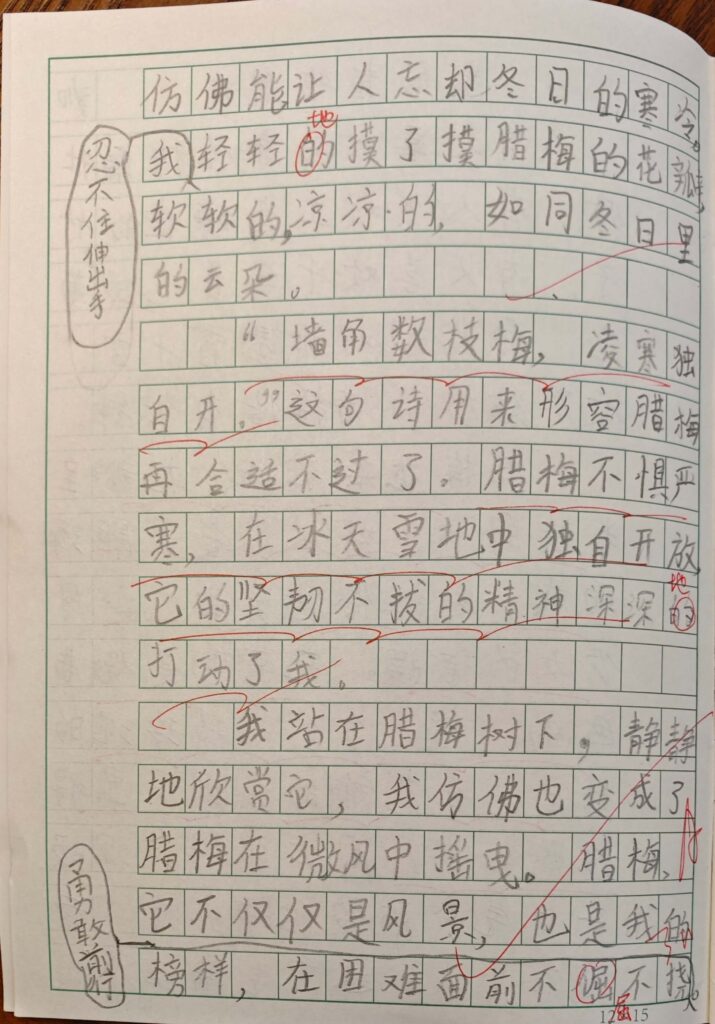 仿佛能让人忘却冬日的寒冷。
地
忍不住伸出手
我轻轻的摸了摸腊梅的花瓣,
软软的,凉凉的,如同冬日里
的云朵。
“墙角数枝梅,凌寒独
自开。”这句诗用来形容腊梅
再合适不过了。腊梅不惧严
寒,在冰天雪地中独自开放,
地
它的坚韧不拔的精神深深的
打动了我。
我站在腊梅树下,静静
地欣赏它,我仿佛也变成了
腊梅在微风中摇曳。腊梅,
它不仅仅是风景,也是我的
勇敢前行
榜样,在困难面前不崛不挠。
屈
12 15